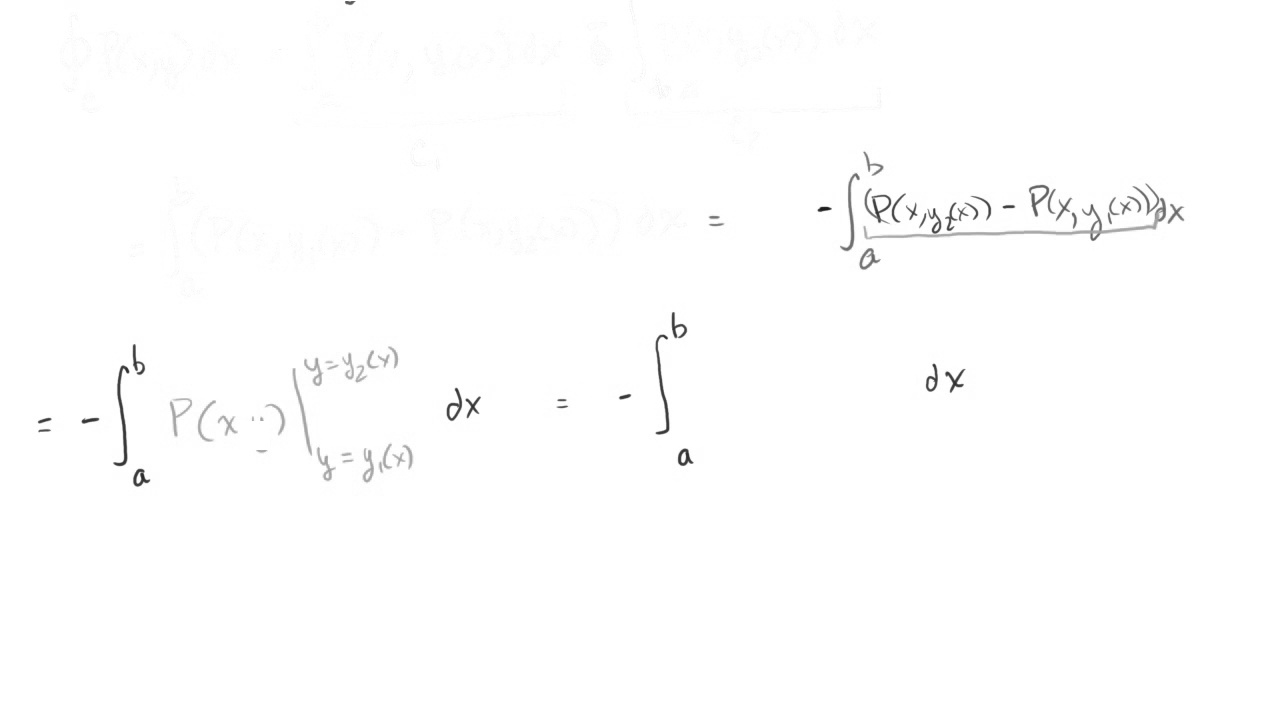 ∮_C P(x,y) dx = ∫ P(x, y₁(x)) dx ∫ P(x, y₂(x)) dx
C₁ C₂
= ∫_a^b (P(x, y₁(x)) - P(x, y₂(x))) dx = - ∫_a^b (P(x, y₂(x)) - P(x, y₁(x))) dx
= - ∫_a^b P(x ..) |_{y = y₁(x)}^{y = y₂(x)} dx = - ∫_a^b dx